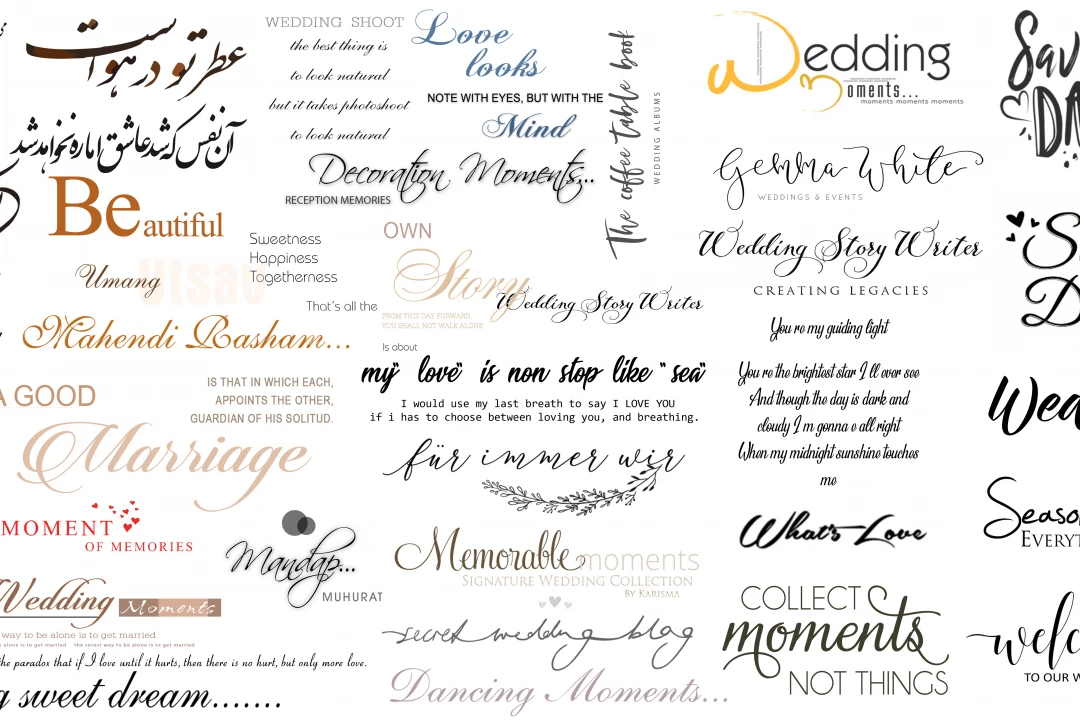 عطر تو در هواست
آن نفس که شد عاشق اماره نخواهد شد
Beautiful
Utsav
Umang
Sweetness
Happiness
Togetherness
Mahendi Rasham...
A GOOD
IS THAT IN WHICH EACH,
APPOINTS THE OTHER,
GUARDIAN OF HIS SOLITUD.
Marriage
MOMENT
OF MEMORIES
Mandap...
MUHURAT
Wedding Moments
way to be alone is to get married
alone is to get married the surest way to be alone is to get married
the paradox that if I love until it hurts, then there is no hurt, but only more love.
g sweet dream.......
WEDDING SHOOT
the best thing is
to look natural
but it takes photoshoot
to look natural
Love
looks
NOTE WITH EYES, BUT WITH THE
Mind
Decoration Moments...
RECEPTION MEMORIES
The coffee table book
WEDDING ALBUMS
OWN
Story
FROM THIS DAY FORWARD,
YOU SHALL NOT WALK ALONE.
Wedding Story Writer
That's all the
Is about
my" love" is non stop like "sea"
I would use my last breath to say I LOVE YOU
if i has to choose between loving you, and breathing.
für immer wir
Memorable moments
SIGNATURE WEDDING COLLECTION
BY KARISMA
secret wedding blog
Dancing Moments...
Wedding
moments...
moments moments moments moments
Gemma White
WEDDINGS & EVENTS
Wedding Story Writer
CREATING LEGACIES
You re my guiding light
You re the brightest star I ll ever see
And though the day is dark and
cloudy I m gonna e all right
When my midnight sunshine touches
me
What's Love
COLLECT
moments
NOT THINGS
Sav
DA
S
D
Wed
Season
EVERYT
welc
TO OUR W